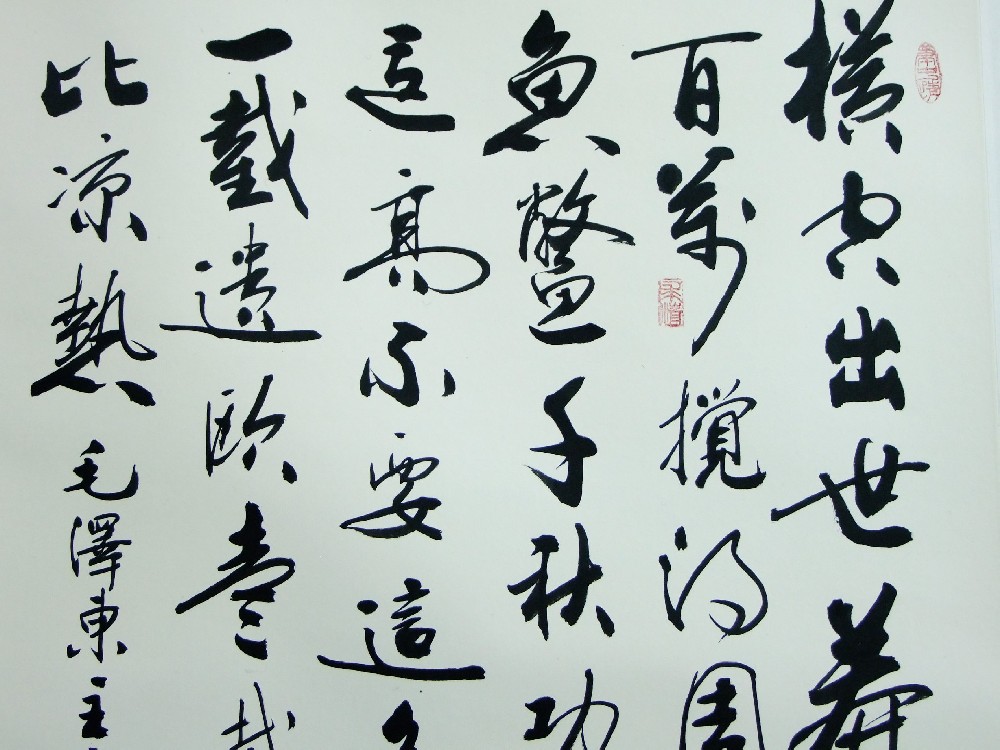 橫空出世莽
百萬攪得周
魚鱉千秋功
這高不要這
一截遺歐壹截
比凉熱 毛澤東主